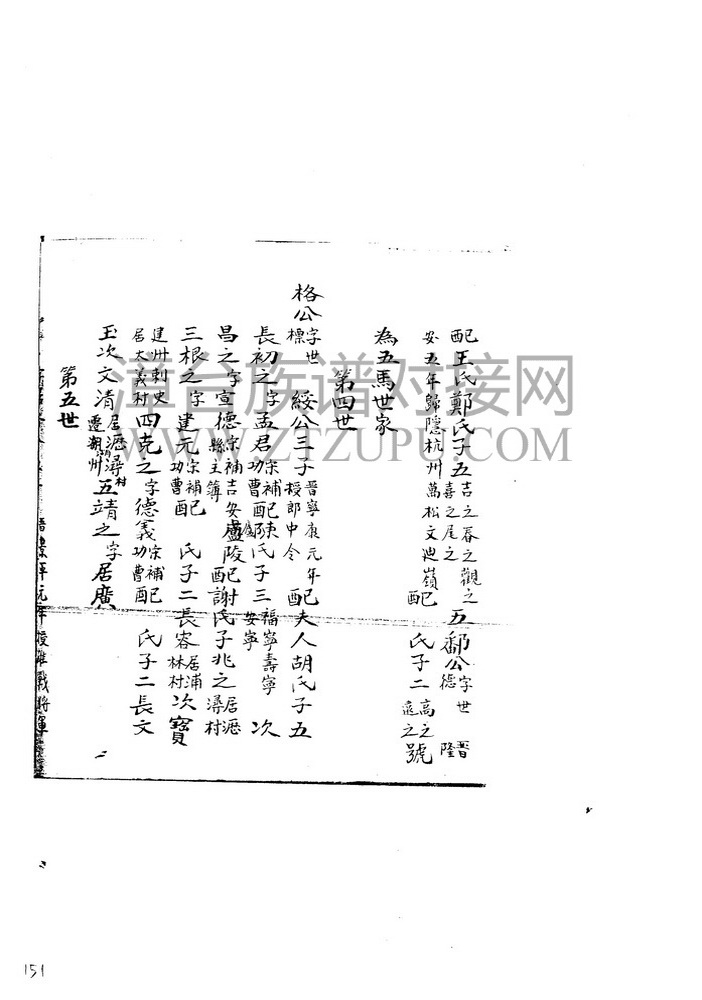 配王氏鄭氏子五吉之春之觀之喜之尾之五鄱公字世德晋隆
安五年歸隱杭州萬松文迪嶺配 氏子二高之遠之號
為五馬世家
第四世
格公字世標綏公三子晋寧康元年授郎中令配夫人胡氏子五
長初之字孟君宋補功曹配陳氏子三福寧壽寧安寧次
昌之字宣德宋補吉安盧陵縣主簿配謝氏子兆之居瀝潯村
三根之字建元宋補功曹配 氏子二長容居浦林村次寶
建州刺史居大義村四克之字德義宋補功曹配 氏子二長文
玉次文清居瀝潯村遷潮州五靖之字居廣
第五世
元年授雄戟將軍
漳台族谱对接网
WWW.ZTZUPU.COM
151